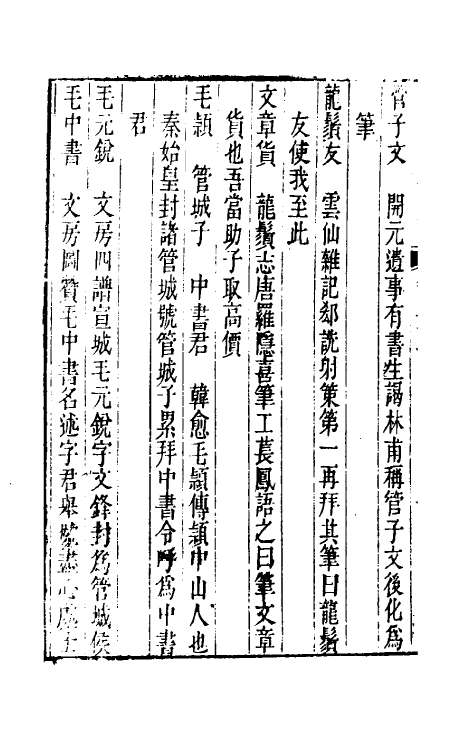 管子文　開元遺事有書生謁林甫稱管子文後化為
筆
龍鬚友　雲仙雜記郄詵射策第一再拜其筆曰龍鬚
友使我至此
文章貨　龍鬚志唐羅隱喜筆工萇鳳語之曰筆文章
貨也吾當助子取高價
毛頴　管城子　中書君　韓愈毛頴傳頴中山人也
秦始皇封諸管城號管城子累拜中書令呼為中書
君
毛元銳　文房四譜宣城毛元銳字文鋒封為管城侯
毛中書　文房圖贊毛中書名述字君舉盡心